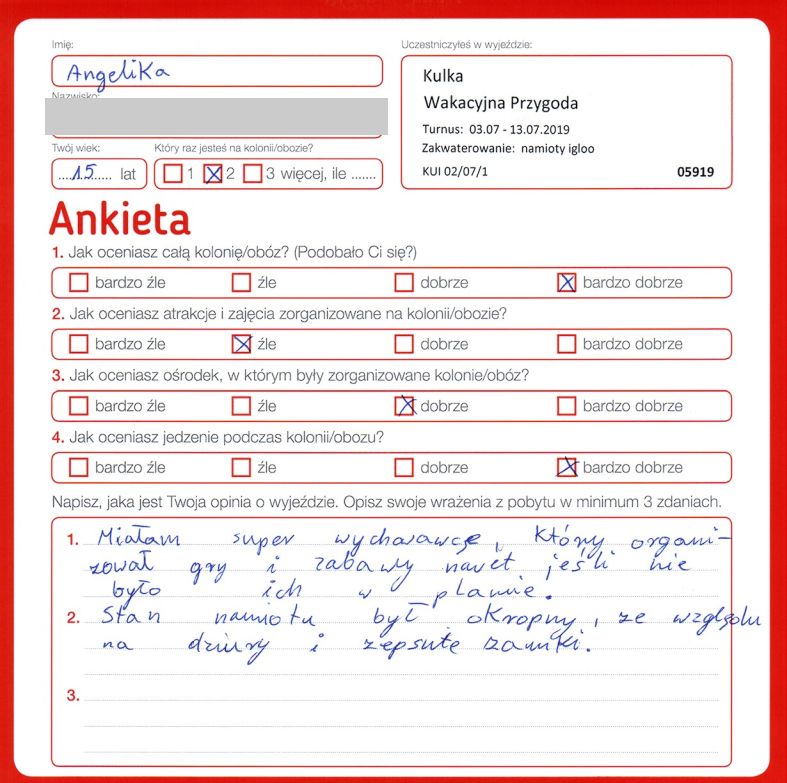 Imię:
Uczestniczyłeś w wyjeździe:
Angelika
Kulka
Wakacyjna Przygoda
Nazwisko:
Turnus: 03.07 - 13.07.2019
Zakwaterowanie: namioty igloo
KUI 02/07/1 05919
Twój wiek: Który raz jesteś na kolonii/obozie?
15 lat 1 2 3 więcej, ile .......
Ankieta
1. Jak oceniasz całą kolonię/obóz? (Podobało Ci się?)
bardzo źle źle dobrze bardzo dobrze
2. Jak oceniasz atrakcje i zajęcia zorganizowane na kolonii/obozie?
bardzo źle źle dobrze bardzo dobrze
3. Jak oceniasz ośrodek, w którym były zorganizowane kolonie/obóz?
bardzo źle źle dobrze bardzo dobrze
4. Jak oceniasz jedzenie podczas kolonii/obozu?
bardzo źle źle dobrze bardzo dobrze
Napisz, jaka jest Twoja opinia o wyjeździe. Opisz swoje wrażenia z pobytu w minimum 3 zdaniach.
1. Miałam super wychowawcę, który organi-
zował gry i zabawy nawet jeśli nie
było ich w planie.
2. Stan namiotu był okropny, ze względu
na dziury i zepsute zamki.
3.